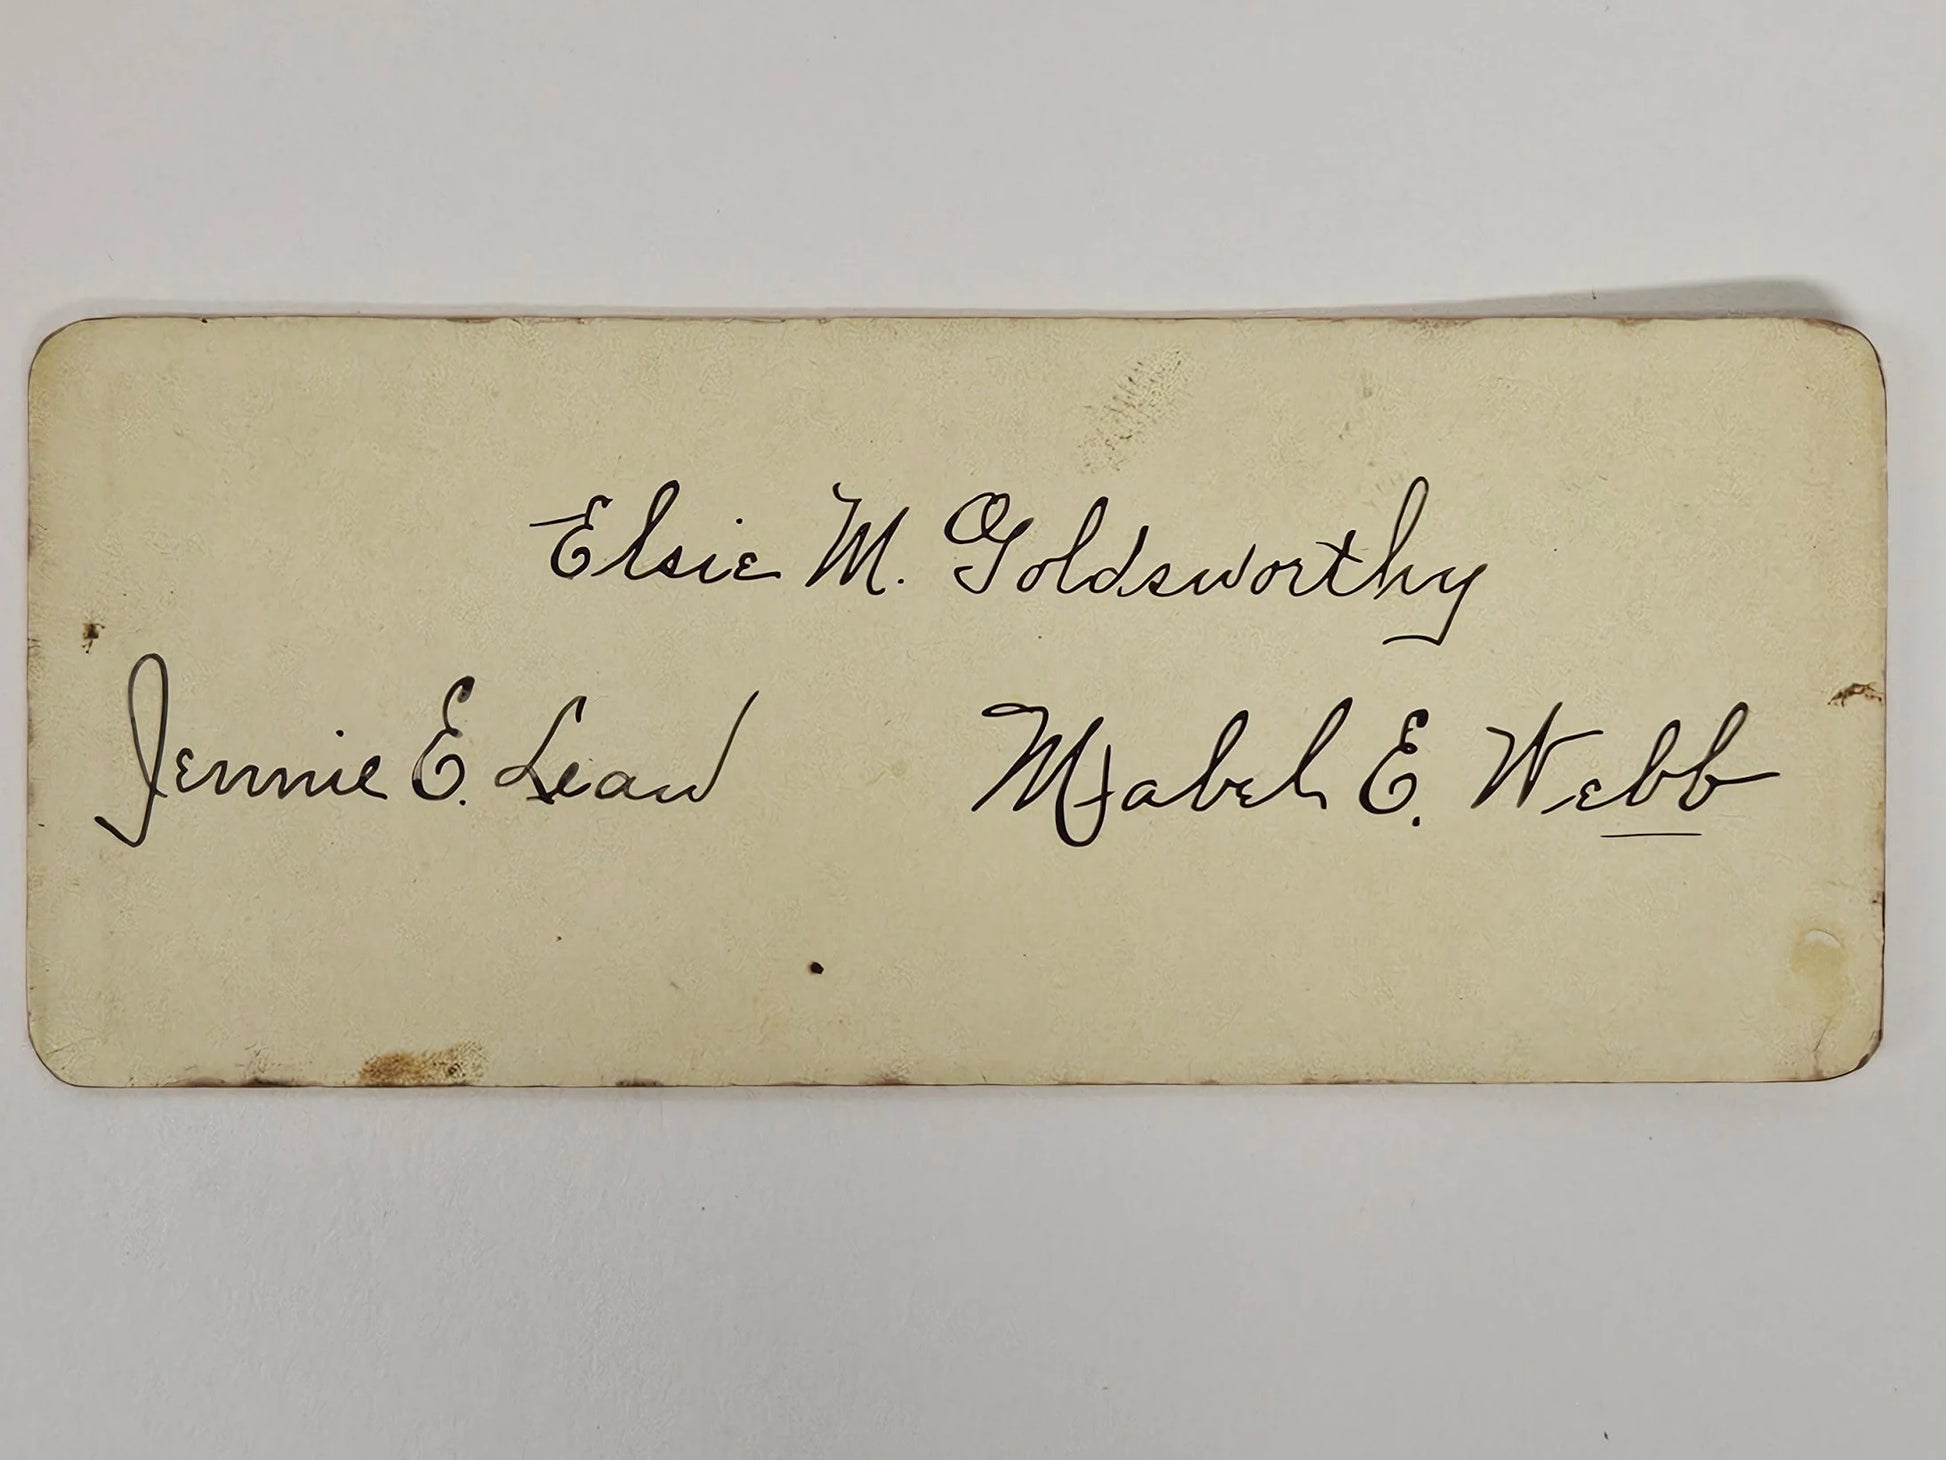 Elsie M. Goldsworthy
Jennie E. Lean Mabel E. Webb